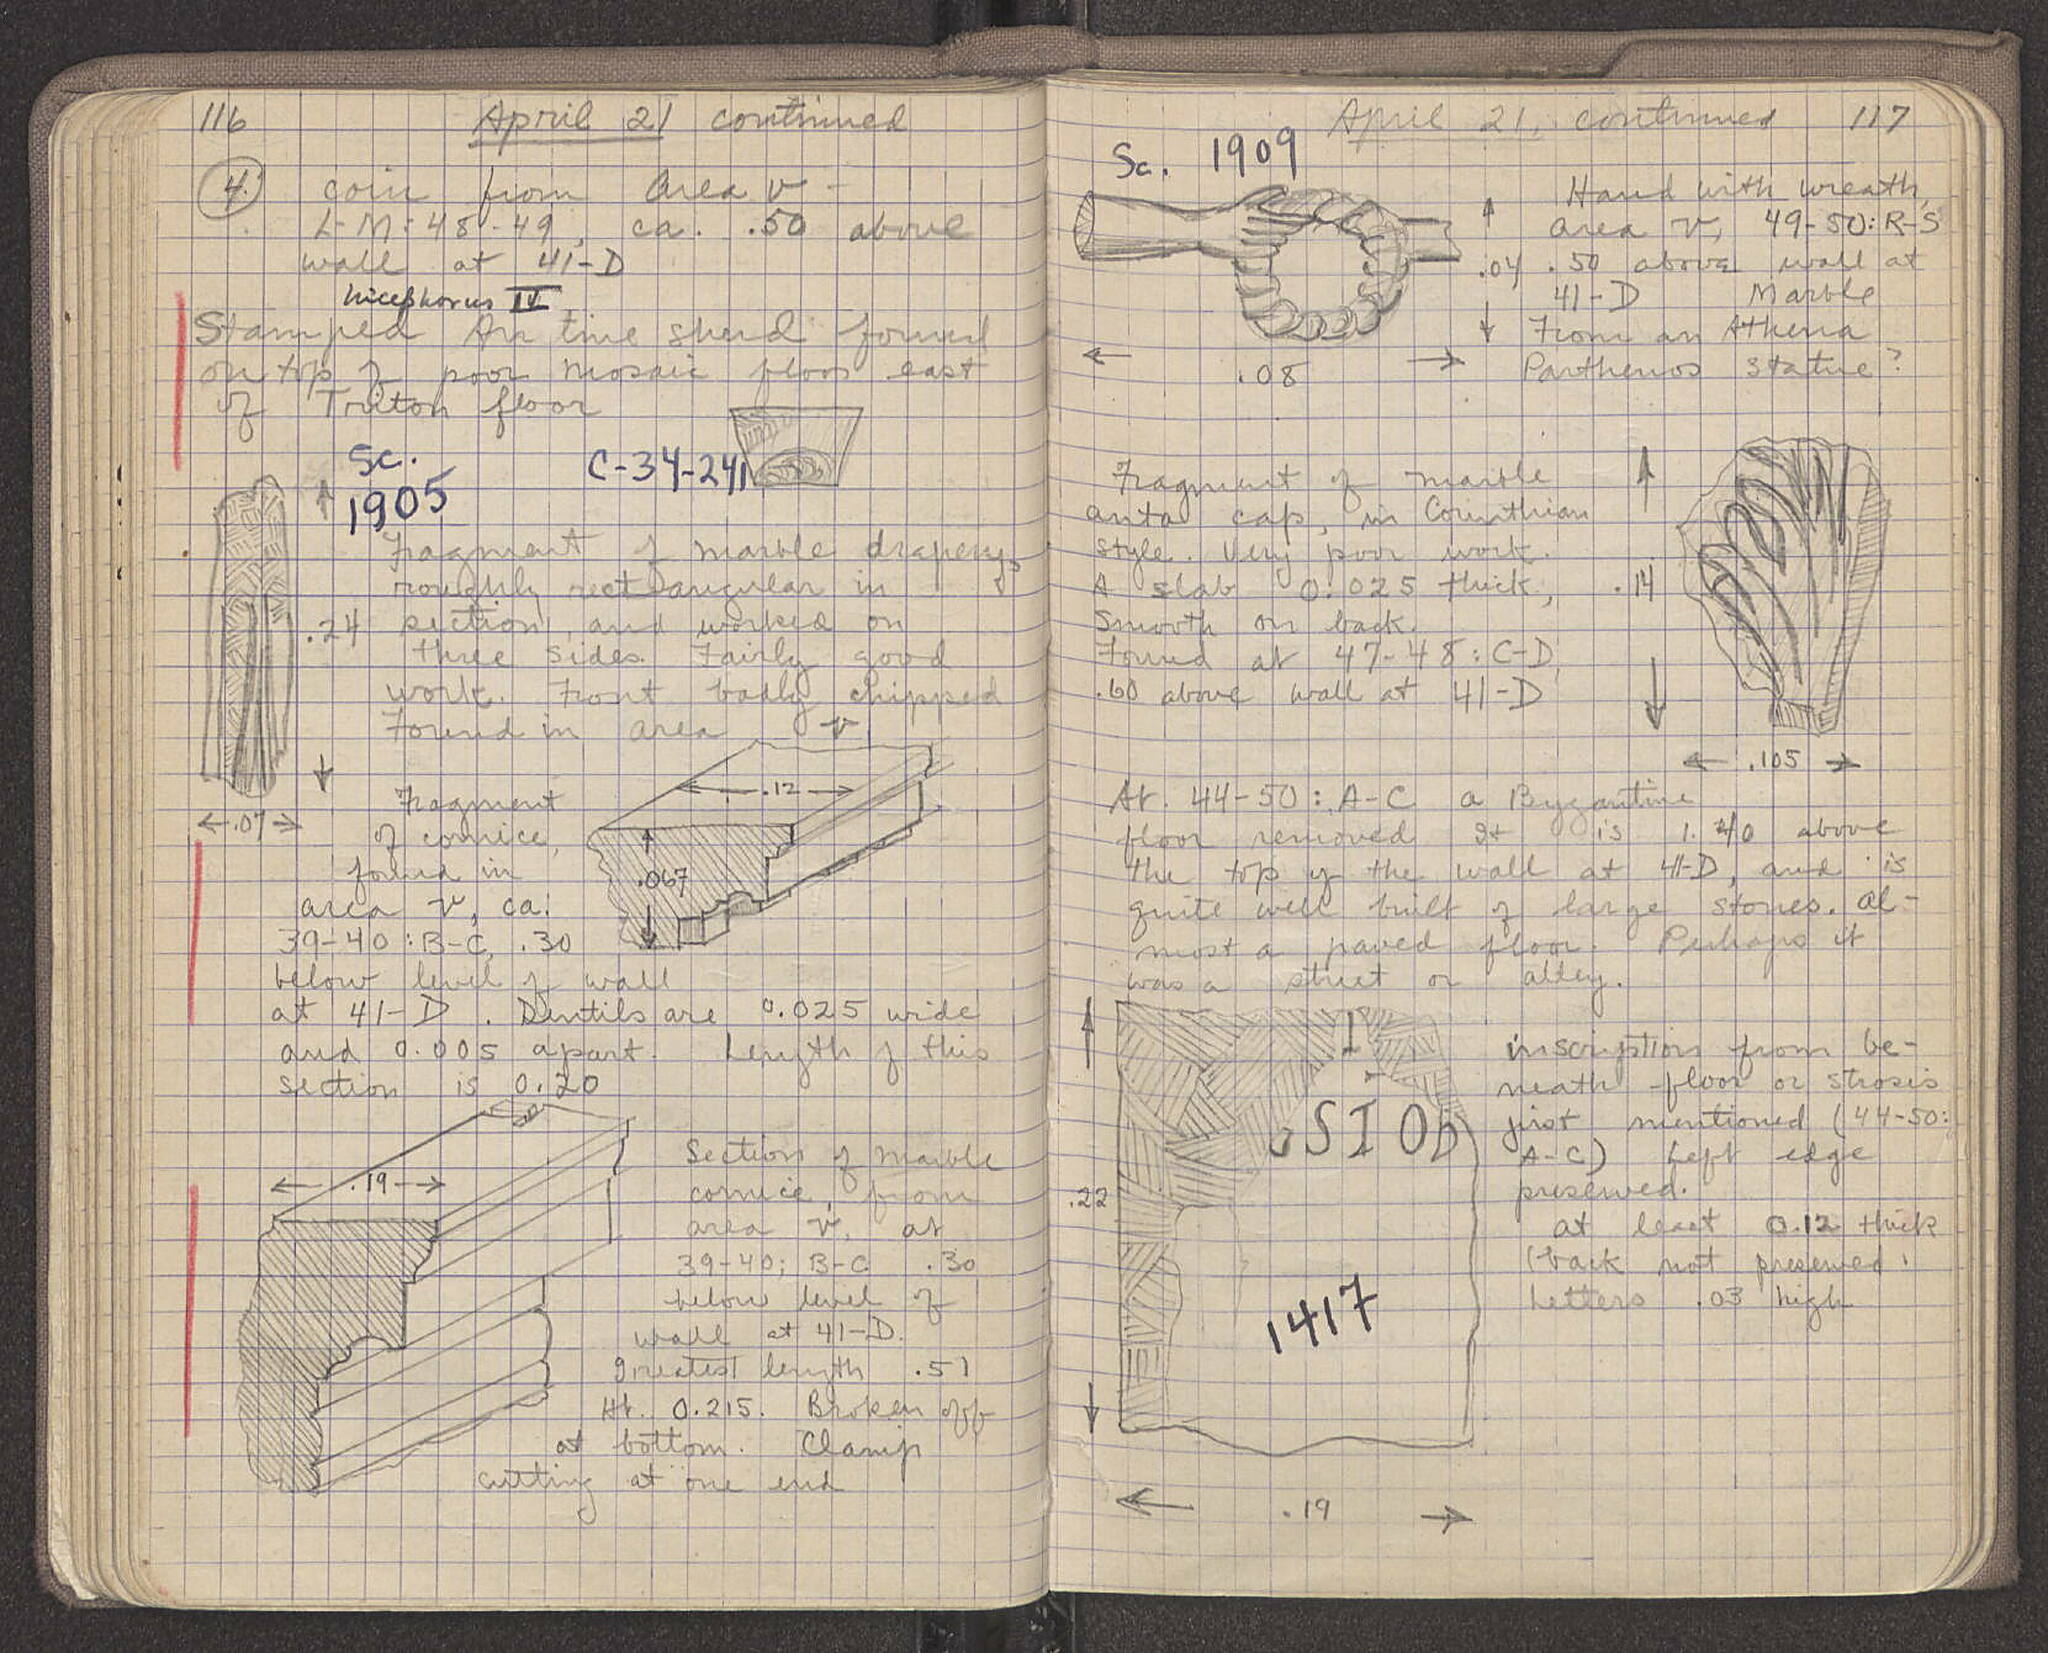 116 April 21 continued
4. coin from area V -
L-M: 48-49, ca. .50 above
wall at 41-D
Nicephorus IV
Stamped Arretine sherd found
on top of poor mosaic floor east
of Triton floor
C-34-241
Sc.
1905
Fragment of marble drapery,
roughly rectangular in
section, and worked on
three sides. Fairly good
work. Front badly chipped
Found in area V
.24
.07
Fragment
of cornice,
found in
area V, ca.
39-40: B-C, .30
below level of wall
at 41-D. Dentils are 0.025 wide
and 0.005 apart. Length of this
section is 0.20
.12
.067
Section of marble
cornice, from
area V, at
39-40; B-C .30
below level of
wall at 41-D.
Greatest length .51
Ht. 0.215. Broken off
at bottom. Clamp
cutting at one end
.19
April 21, continued 117
Sc. 1909
Hand with wreath,
area V, 49-50: R-S
.50 above wall at
41-D Marble
From an Athena
Parthenos statue?
.04
.08
Fragment of marble
anta cap, in Corinthian
style. Very poor work.
A slab 0.025 thick,
smooth on back.
Found at 47-48: C-D,
.60 above wall at 41-D
.14
.105
At 44-50: A-C a Byzantine
floor removed. It is 1.40 above
the top of the wall at 41-D, and is
quite well built of large stones. Al-
most a paved floor. Perhaps it
was a street or alley.
inscription from be-
neath floor or strosis
just mentioned (44-50:
A-C) Left edge
preserved.
at least 0.12 thick
(back not preserved.
Letters .03 high
I
SIOb
1417
.22
.19